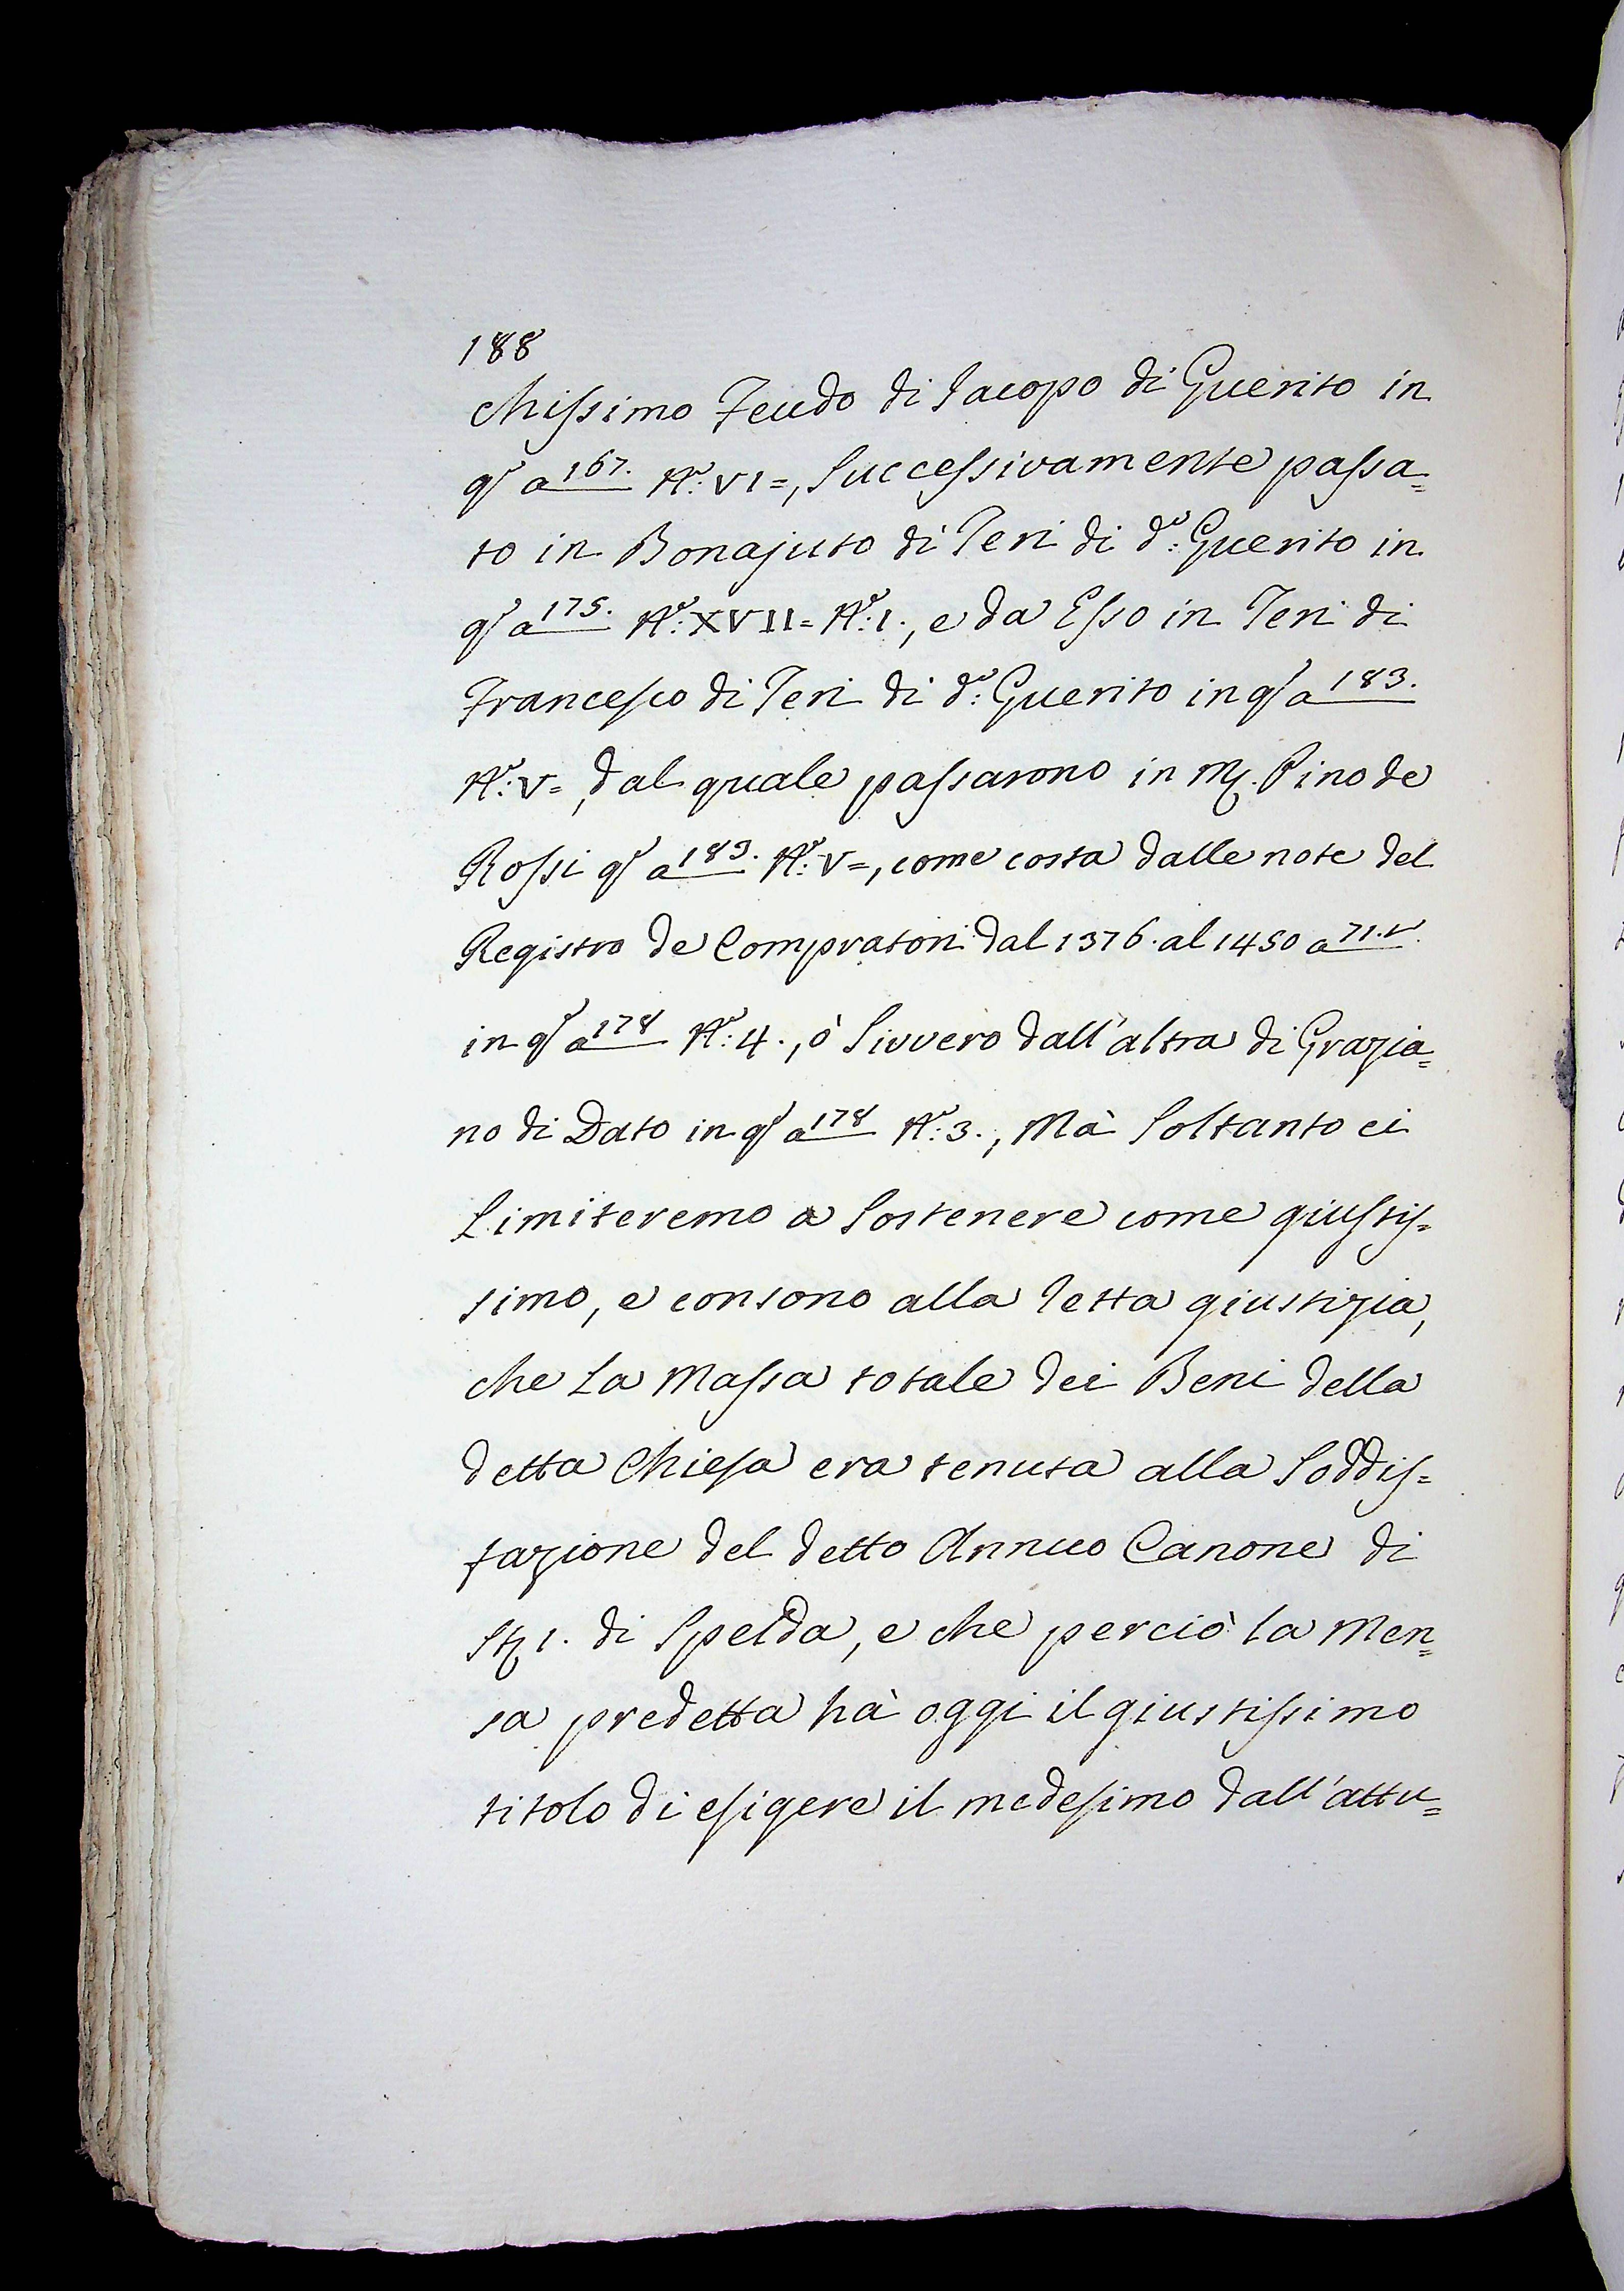 188
chissimo Feudo di Iacopo di Guerito in
qs a 167. No: VI=, Successivamente passa=
to in Bonajuto di Teri di do: Guerito in
qs a 175. No: XVII= No: 1., e da Esso in Teri di
Francesco di Teri di do: Guerito in qs a 183.
No: V=, dal quale passarono in M. Pino de
Rossi qs a 183. No: V=, come costa dalle note del
Registro de Compratori dal 1376. al 1450 a 71.t.
in qs a 178 No: 4., ò Sivvero dall'altra di Grazia=
no di Dato in qs a 178 No: 3., Mà Soltanto ci
Limiteremo a Sostenere come giustis=
simo, e consono alla retta giustizia,
che La Massa totale dei Beni della
detta Chiesa era tenuta alla Soddis=
fazione del detto Annuo Canone di
St 1. di Spelda, e che perciò la Men=
sa predetta hà oggi il giustissimo
titolo di esigere il medesimo dall'attu=